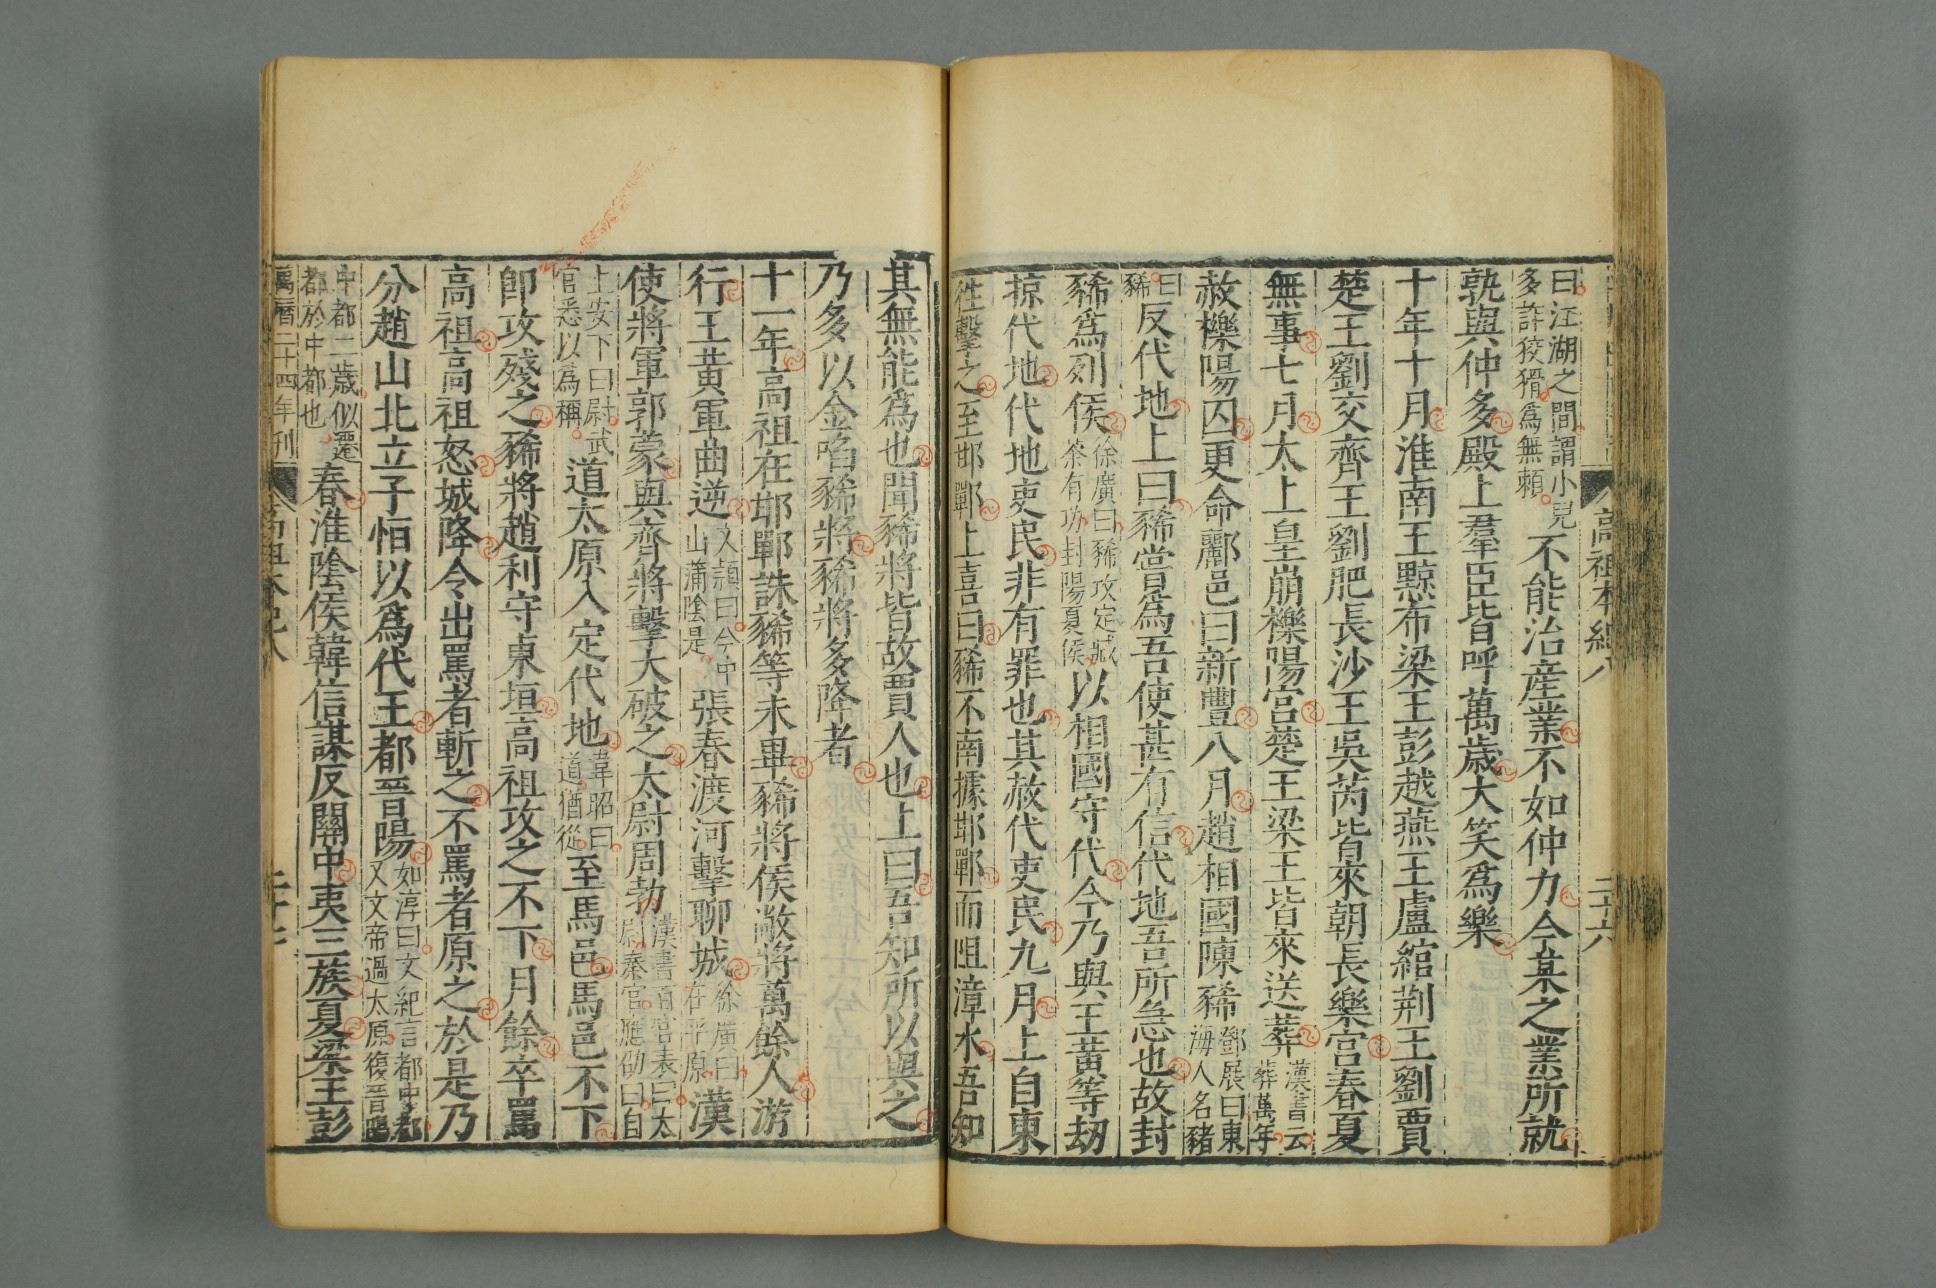 高祖本紀八 二十六
曰江湖之間謂小兒多詐狡猾爲無賴不能治產業不如仲力今某之業所就
孰與仲多殿上羣臣皆呼萬歲大笑爲樂
十年十月淮南王黥布梁王彭越燕王盧綰荆王劉賈
楚王劉交齊王劉肥長沙王吳芮皆來朝長樂宮春夏
無事七月太上皇崩櫟陽宮楚王梁王皆來送葬漢書云葬萬年
赦櫟陽囚更命酈邑曰新豐八月趙相國陳豨鄧展曰東海人名豬
曰豨反代地上曰豨嘗爲吾使甚有信代地吾所急也故封
豨爲列侯徐廣曰豨攻定臧荼有功封陽夏侯以相國守代今乃與王黃等劫
掠代地代地吏民非有罪也其赦代吏民九月上自東
往擊之至邯鄲上喜曰豨不南據邯鄲而阻漳水吾知
其無能爲也聞豨將皆故賈人也上曰吾知所以與之
乃多以金啗豨將豨將多降者
十一年高祖在邯鄲誅豨等未畢豨將侯敞將萬餘人游
行王黃軍曲逆文頴曰今中山蒲陰是張春渡河擊聊城徐廣曰在平原漢
使將軍郭蒙與齊將擊大破之太尉周勃漢書百官表曰太尉秦官應劭曰自
上安下曰尉武官悉以爲稱道太原入定代地韋昭曰道猶從至馬邑馬邑不下
卽攻殘之豨將趙利守東垣高祖攻之不下月餘卒罵
高祖高祖怒城降令出罵者斬之不罵者原之於是乃
分趙山北立子恒以爲代王都晉陽如淳曰文紀言都中都又文帝過太原復晉陽
中都二歲似遷都於中都也春淮陰侯韓信謀反關中夷三族夏梁王彭
萬曆二十四年刊 高祖本紀八 二十七